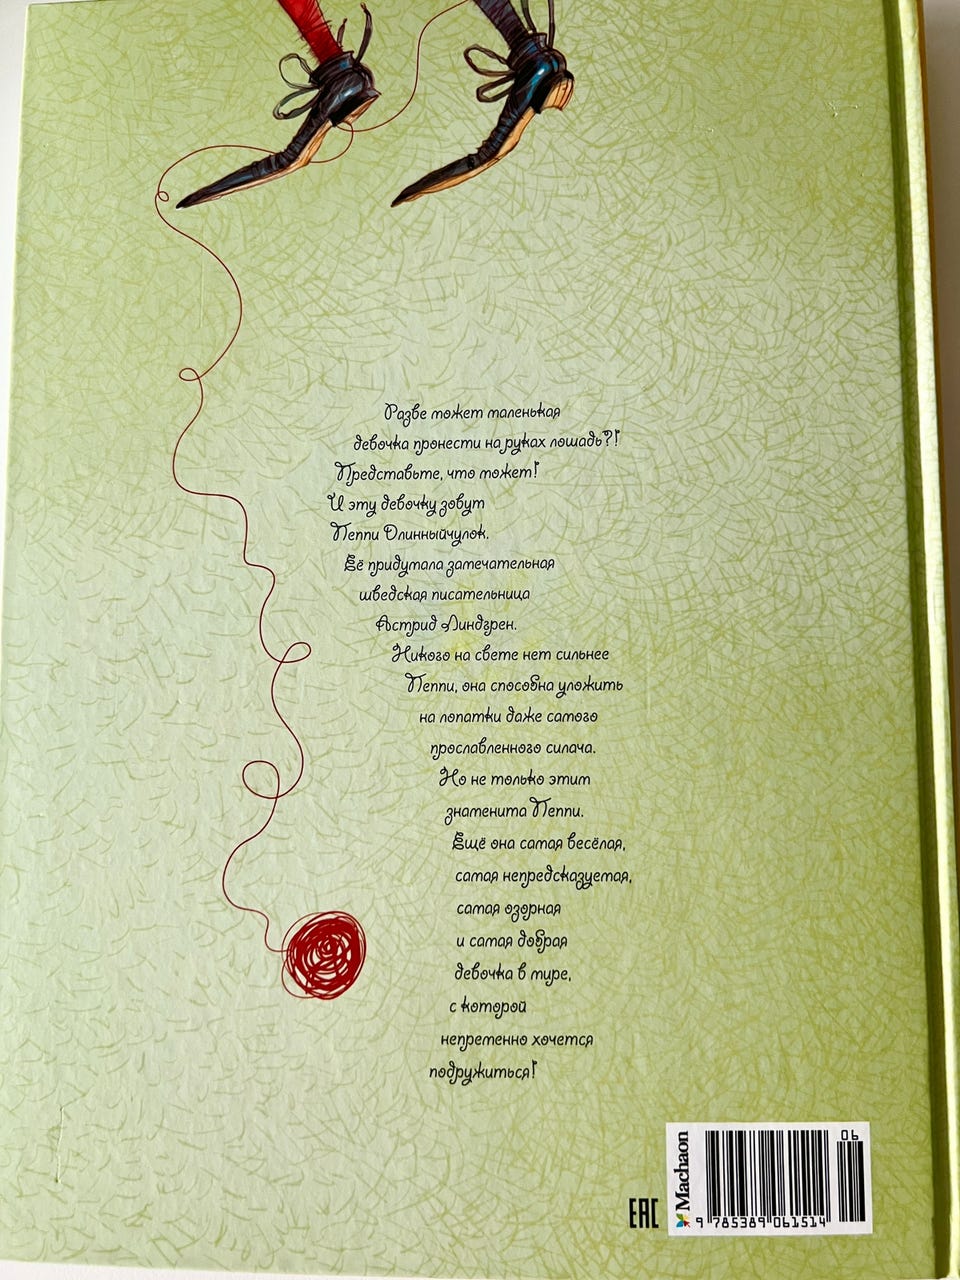 Разве может маленькая
девочка пронести на руках лошадь?!
Представьте, что может!
И эту девочку зовут
Пеппи Длинныйчулок.
Её придумала замечательная
шведская писательница
Астрид Линдгрен.
Никого на свете нет сильнее
Пеппи, она способна уложить
на лопатки даже самого
прославленного силача.
Но не только этим
знаменита Пеппи.
Ещё она самая весёлая,
самая непредсказуемая,
самая озорная
и самая добрая
девочка в мире,
с которой
непременно хочется
подружиться!
EAC
Machaon
06
9 785389 061514